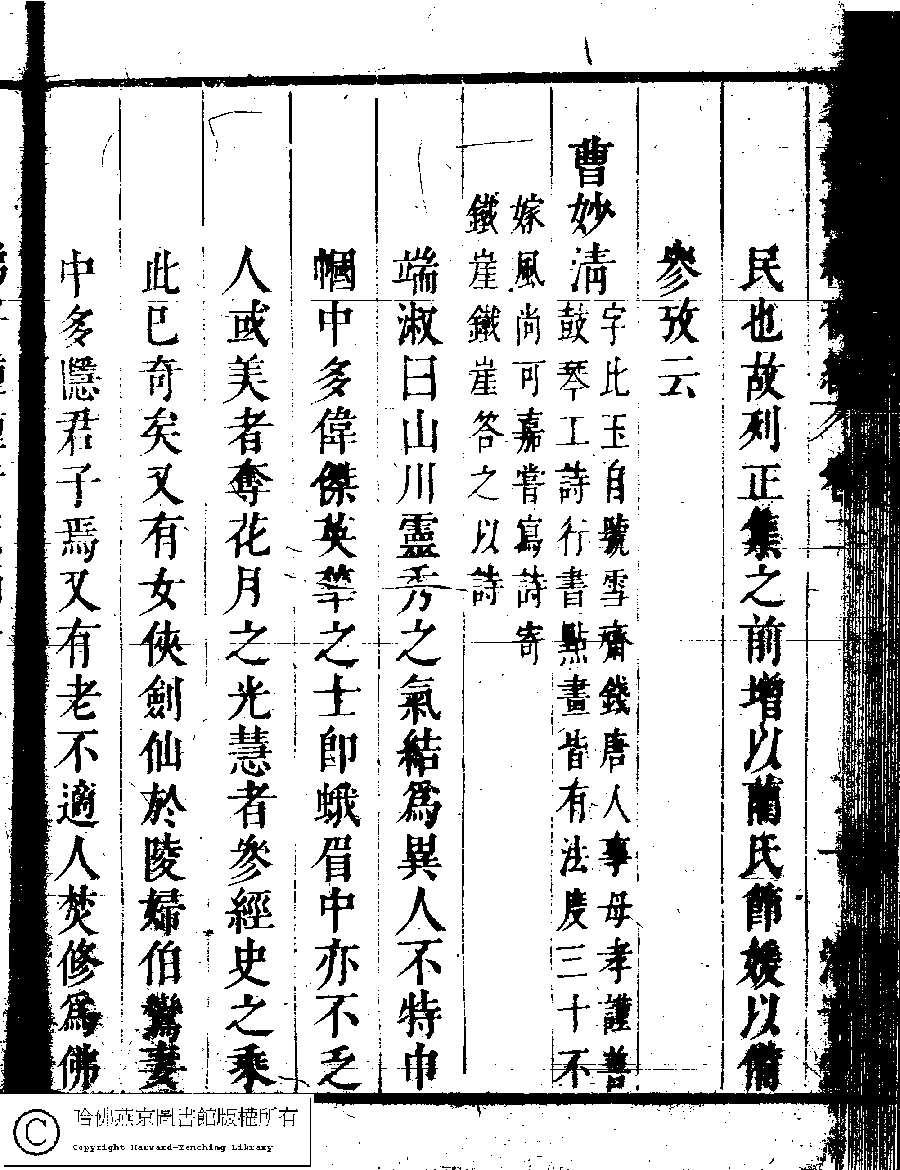 民也故列正集之前增以藺氏節媛以備
參攷云
曹妙清
字比玉自號雪齋錢唐人事母孝謹善
鼓琴工詩行書點畫皆有法度三十不
嫁風尚可嘉嘗寫詩寄
鐵崖鐵崖答之以詩
端淑曰山川靈秀之氣結爲異人不特巾
幗中多偉傑英華之士卽蛾眉中亦不乏
人或美者奪花月之光慧者參經史之乘
此巳奇矣又有女俠劍仙於陵婦伯鸞妻
中多隱君子焉又有老不適人焚修爲佛
哈佛燕京圖書館版權所有
Copyright Harvard-Yenching Library